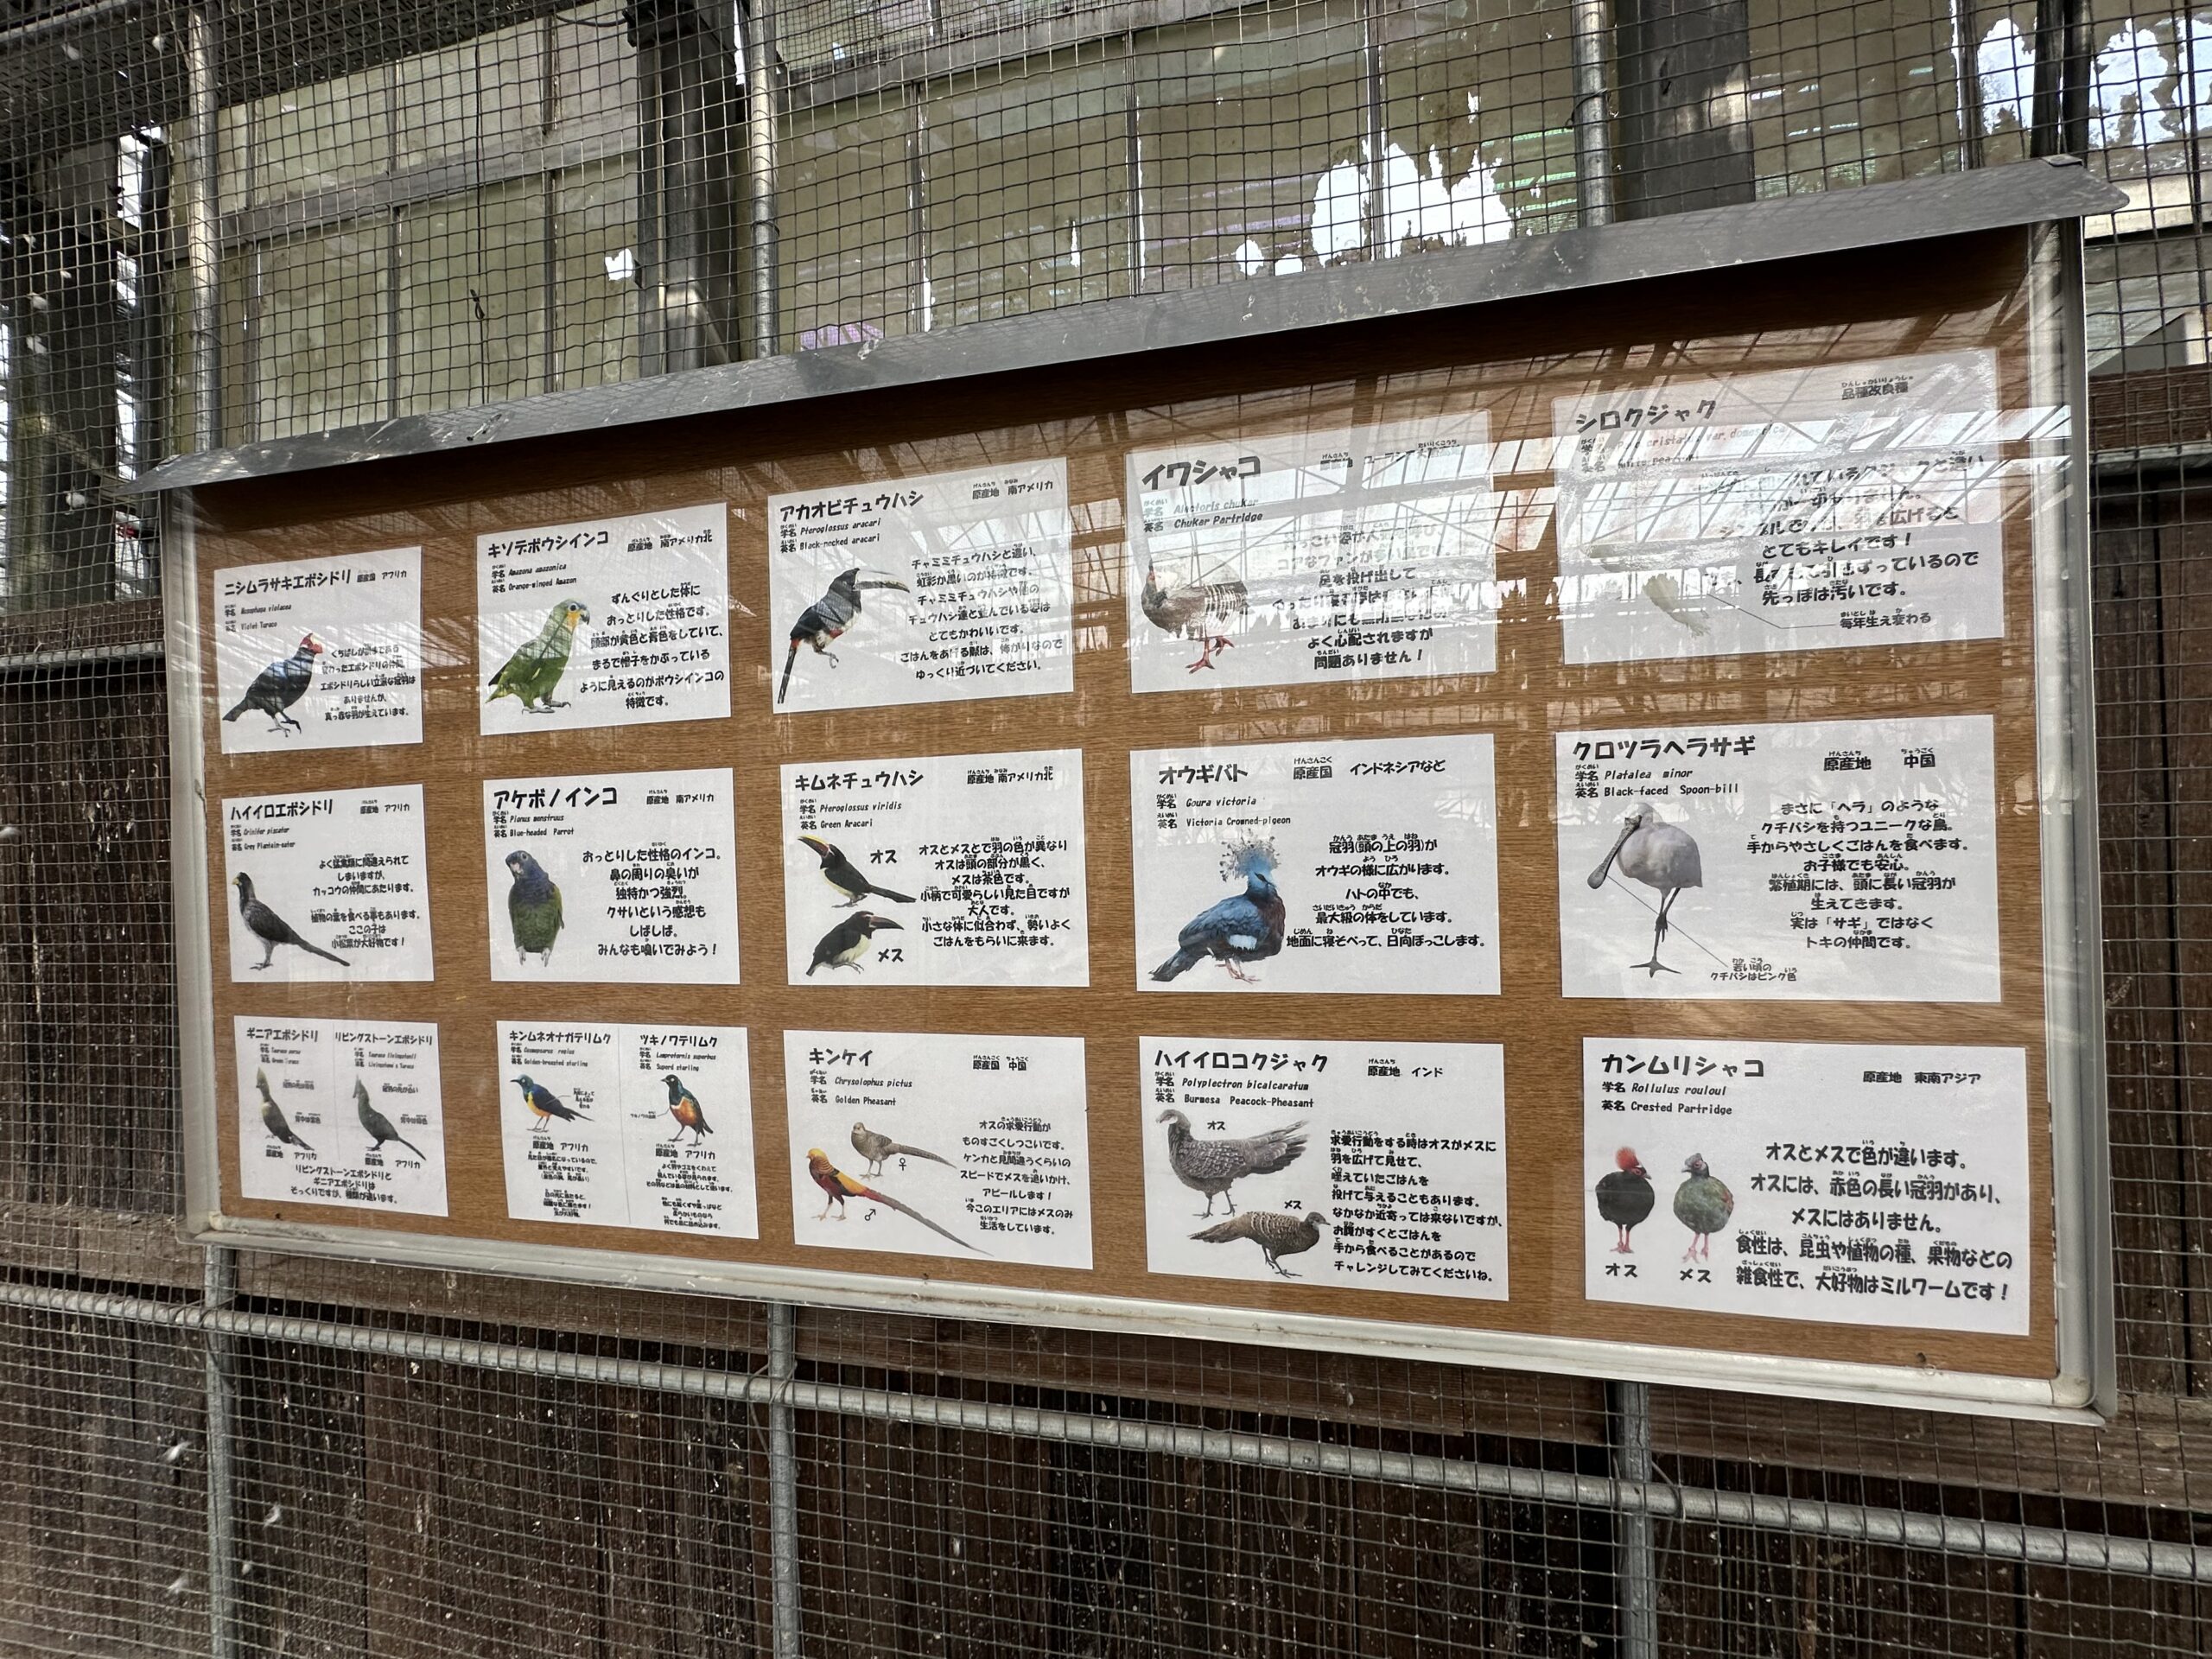 ニシムラサキエボシドリ
原産国 アフリカ
学名 Musophaga violacea
英名 Violet Turaco
くちばしが
エボシドリらしい立派な冠羽は
ありませんが、
真っ赤な羽が生えています。
キソデボウシインコ
原産地 南アメリカ北
学名 Amazona amazonica
英名 Orange-winged Amazon
ずんぐりとした体に
おっとりした性格です。
頭部が黄色と青色をしていて、
まるで帽子をかぶっている
ように見えるのがボウシインコの
特徴です。
アカオビチュウハシ
原産地 南アメリカ
学名 Pteroglossus aracari
英名 Black-necked aracari
チャミミチュウハシと違い、
虹彩が黒いのが特徴です。
チャミミチュウハシや他の
チュウハシ達と並んでいる姿は
とてもかわいいです。
ごはんをあげる際は、怖がりなので
ゆっくり近づいてください。
イワシャコ
原産地 ユーラシア大陸
学名 Alectoris chukar
英名 Chukar Partridge
足を投げ出して
よく心配されますが
問題ありません！
シロクジャク
品種改良種
学名
英名
羽を広げると
とてもキレイです！
引きずっているので
先っぽは汚いです。
毎年生え変わる
ハイイロエボシドリ
原産地 アフリカ
学名 Crinifer piscator
英名 Grey Plantain-eater
よく猛禽類に間違えられて
しまいますが、
カッコウの仲間にあたります。
植物の葉を食べる事もあります。
ここの子は
小松菜が大好物です！
アケボノインコ
原産地 南アメリカ
学名 Pionus menstruus
英名 Blue-headed Parrot
おっとりした性格のインコ。
鼻の周りの臭いが
独特かつ強烈。
クサいという感想も
しばしば。
みんなも嗅いでみよう！
キムネチュウハシ
原産地 南アメリカ北
学名 Pteroglossus viridis
英名 Green Aracari
オス
メス
オスとメスとで羽の色が異なり
オスは頭の部分が黒く、
メスは茶色です。
小柄で可愛らしい見た目ですが
大人です。
小さな体に似合わず、勢いよく
ごはんをもらいに来ます。
オウギバト
原産国 インドネシアなど
学名 Goura victoria
英名 Victoria Crowned-pigeon
冠羽(頭の上の羽)が
オウギの様に広がります。
ハトの中でも、
最大級の体をしています。
地面に寝そべって、日向ぼっこします。
クロツラヘラサギ
原産地 中国
学名 Platalea minor
英名 Black-faced Spoon-bill
まさに「ヘラ」のような
クチバシを持つユニークな鳥。
手からやさしくごはんを食べます。
お子様でも安心。
繁殖期には、頭に長い冠羽が
生えてきます。
実は「サギ」ではなく
トキの仲間です。
若い頃の
クチバシはピンク色
ギニアエボシドリ
英名 Green Turaco
原産地 アフリカ
リビングストーンエボシドリ
学名 Tauraco livingstonii
英名 Livingstone's Turaco
原産地 アフリカ
リビングストーンエボシドリと
ギニアエボシドリは
そっくりですが、種類が違います。
キンムネオナガテリムク
学名 Cosmopsarus regius
英名 Golden-breasted starling
原産地 アフリカ
ツキノワテリムク
学名 Lamprotornis superbus
英名 Superd starling
原産地 アフリカ
キンケイ
原産国 中国
学名 Chrysolophus pictus
英名 Golden Pheasant
♀
♂
オスの求愛行動が
ものすごくしつこいです。
ケンカと見間違うくらいの
スピードでメスを追いかけ、
アピールします！
今このエリアにはメスのみ
生活をしています。
ハイイロコクジャク
原産地 インド
学名 Polyplectron bicalcaratum
英名 Burmesa Peacock-Pheasant
オス
メス
求愛行動をする時はオスがメスに
羽を広げて見せて、
咥えていたごはんを
投げて与えることもあります。
なかなか近寄っては来ないですが、
お腹がすくとごはんを
手から食べることがあるので
チャレンジしてみてくださいね。
カンムリシャコ
原産地 東南アジア
学名 Rollulus rouloul
英名 Crested Partridge
オス
メス
オスとメスで色が違います。
オスには、赤色の長い冠羽があり、
メスにはありません。
食性は、昆虫や植物の種、果物などの
雑食性で、大好物はミルワームです！